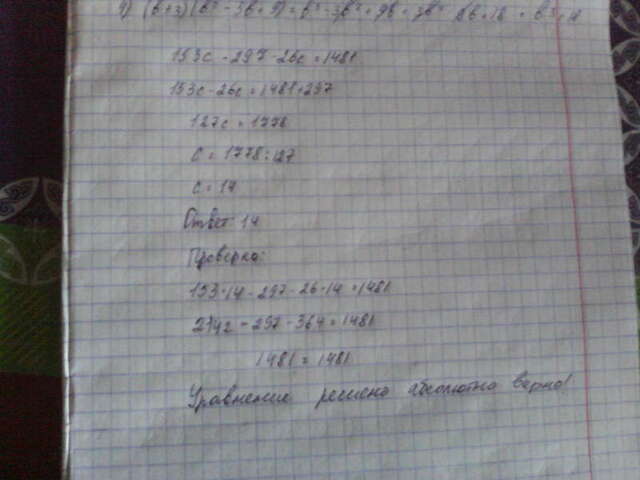 153c - 297 - 26c = 1481
153c - 26c = 1481 + 297
127c = 1778
c = 1778 : 127
c = 14
Ответ 14
Проверка:
153·14 - 297 - 26·14 = 1481
2142 - 297 - 364 = 1481
1481 = 1481
Уравнение решено абсолютно верно!